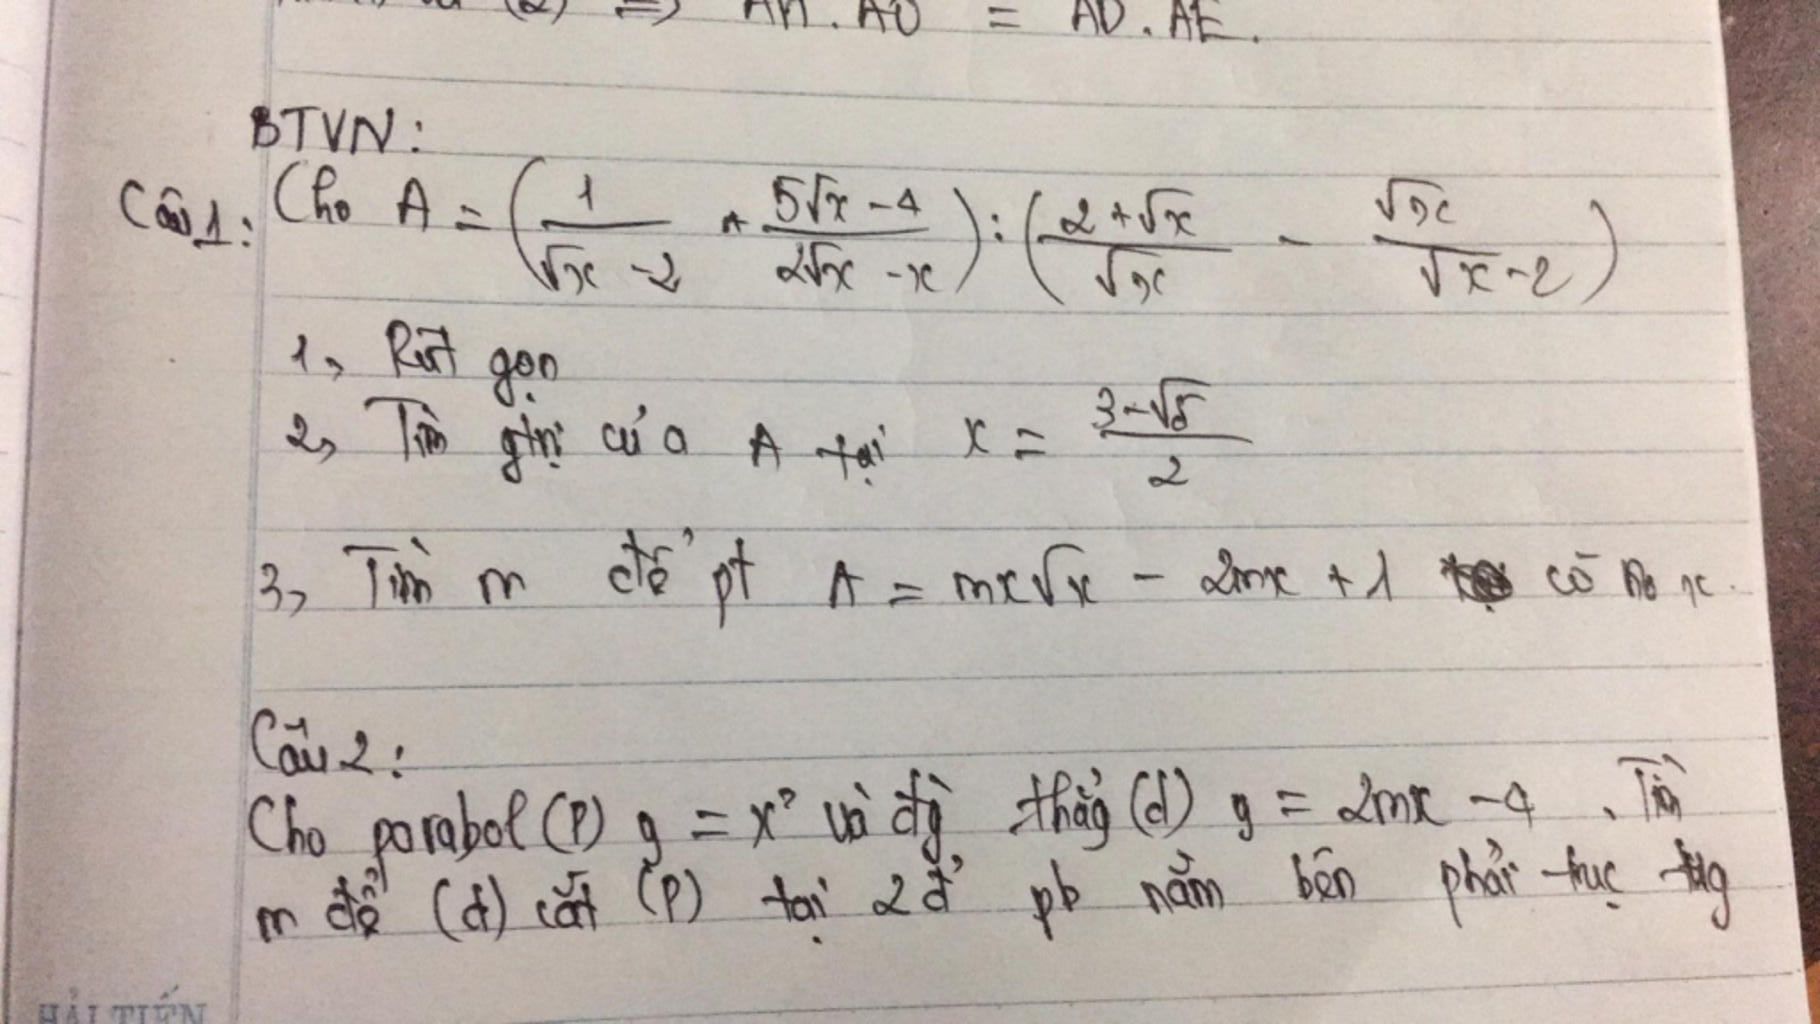 (2) => AH . AO = AD . AE.
BTVN:
Câu 1: Cho A = (1/(√x - 2) + (5√x - 4)/(2√x - x)) : ((2 + √x)/√x - √x/(√x - 2))
1, Rút gọn
2, Tìm gtrị của A tại x = (3 - √5)/2
3, Tìm m để pt A = mx√x - 2mx + 1 có no x.
Câu 2:
Cho parabol (P) y = x² và đg thẳg (d) y = 2mx - 4 . Tìm
m để (d) cắt (P) tại 2 đ' pb nằm bên phải trục tug
HẢI TIẾN